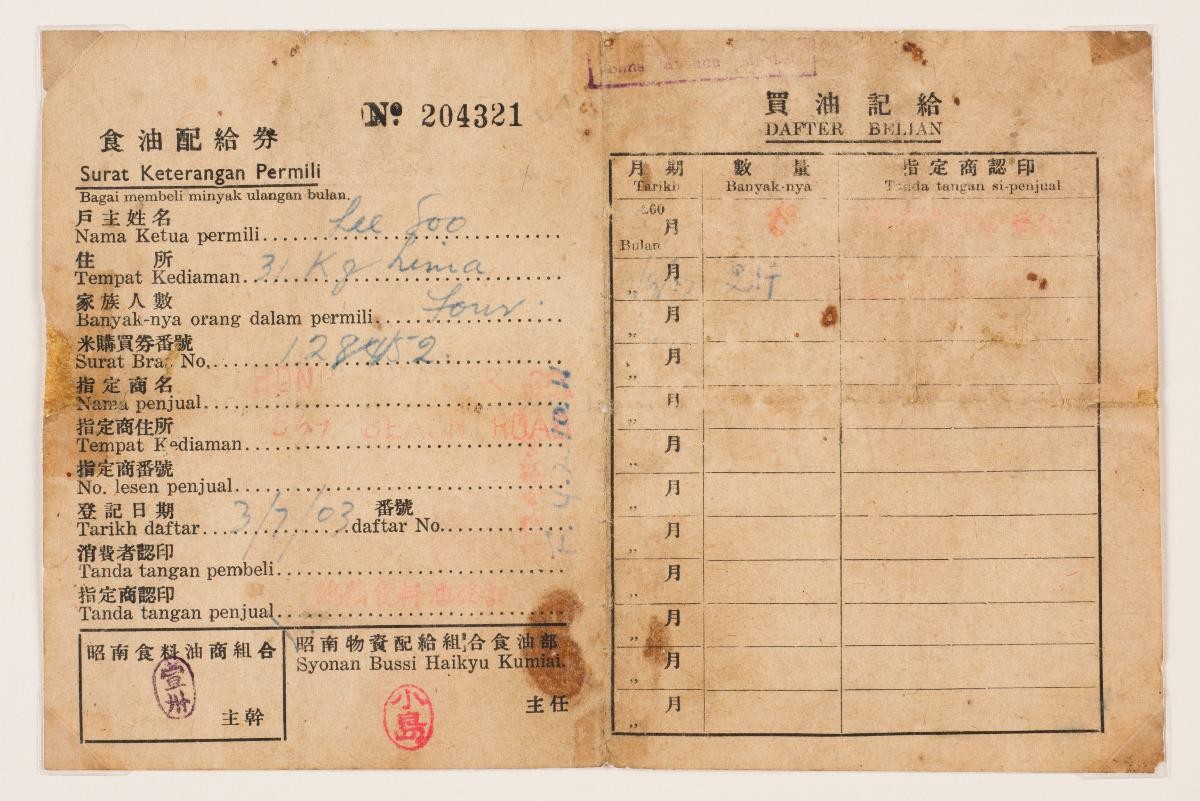 No. 204321
食油配給券
Surat Keterangan Permili
Bagai membeli minyak ulangan bulan.
戶主姓名
Nama Ketua permili Lee Soo
住所
Tempat Kediaman 31 Kg
家族人數
Banyak-nya orang dalam permili four.
米購買券番號
Surat Bras No. 128452
指定商名
Nama penjual
指定商住所
Tempat Kediaman BEACH ROAD
指定商番號
No. lesen penjual
登記日期 番號
Tarikh daftar 3/7/03 daftar No.
消費者認印
Tanda tangan pembeli
指定商認印
Tanda tangan penjual
昭南食料油商組合
主幹
昭南物資配給組合食油部
Syonan Bussi Haikyu Kumiai.
小島
主任
買油記給
DAFTER BELIAN
月期 數量 指定商認印
Tarikh Banyak-nya Tanda tangan si-penjual
月
Bulan
月
„
月
„
月
„
月
„
月
„
月
„
月
„
月
„
月
„
月
„
月
„